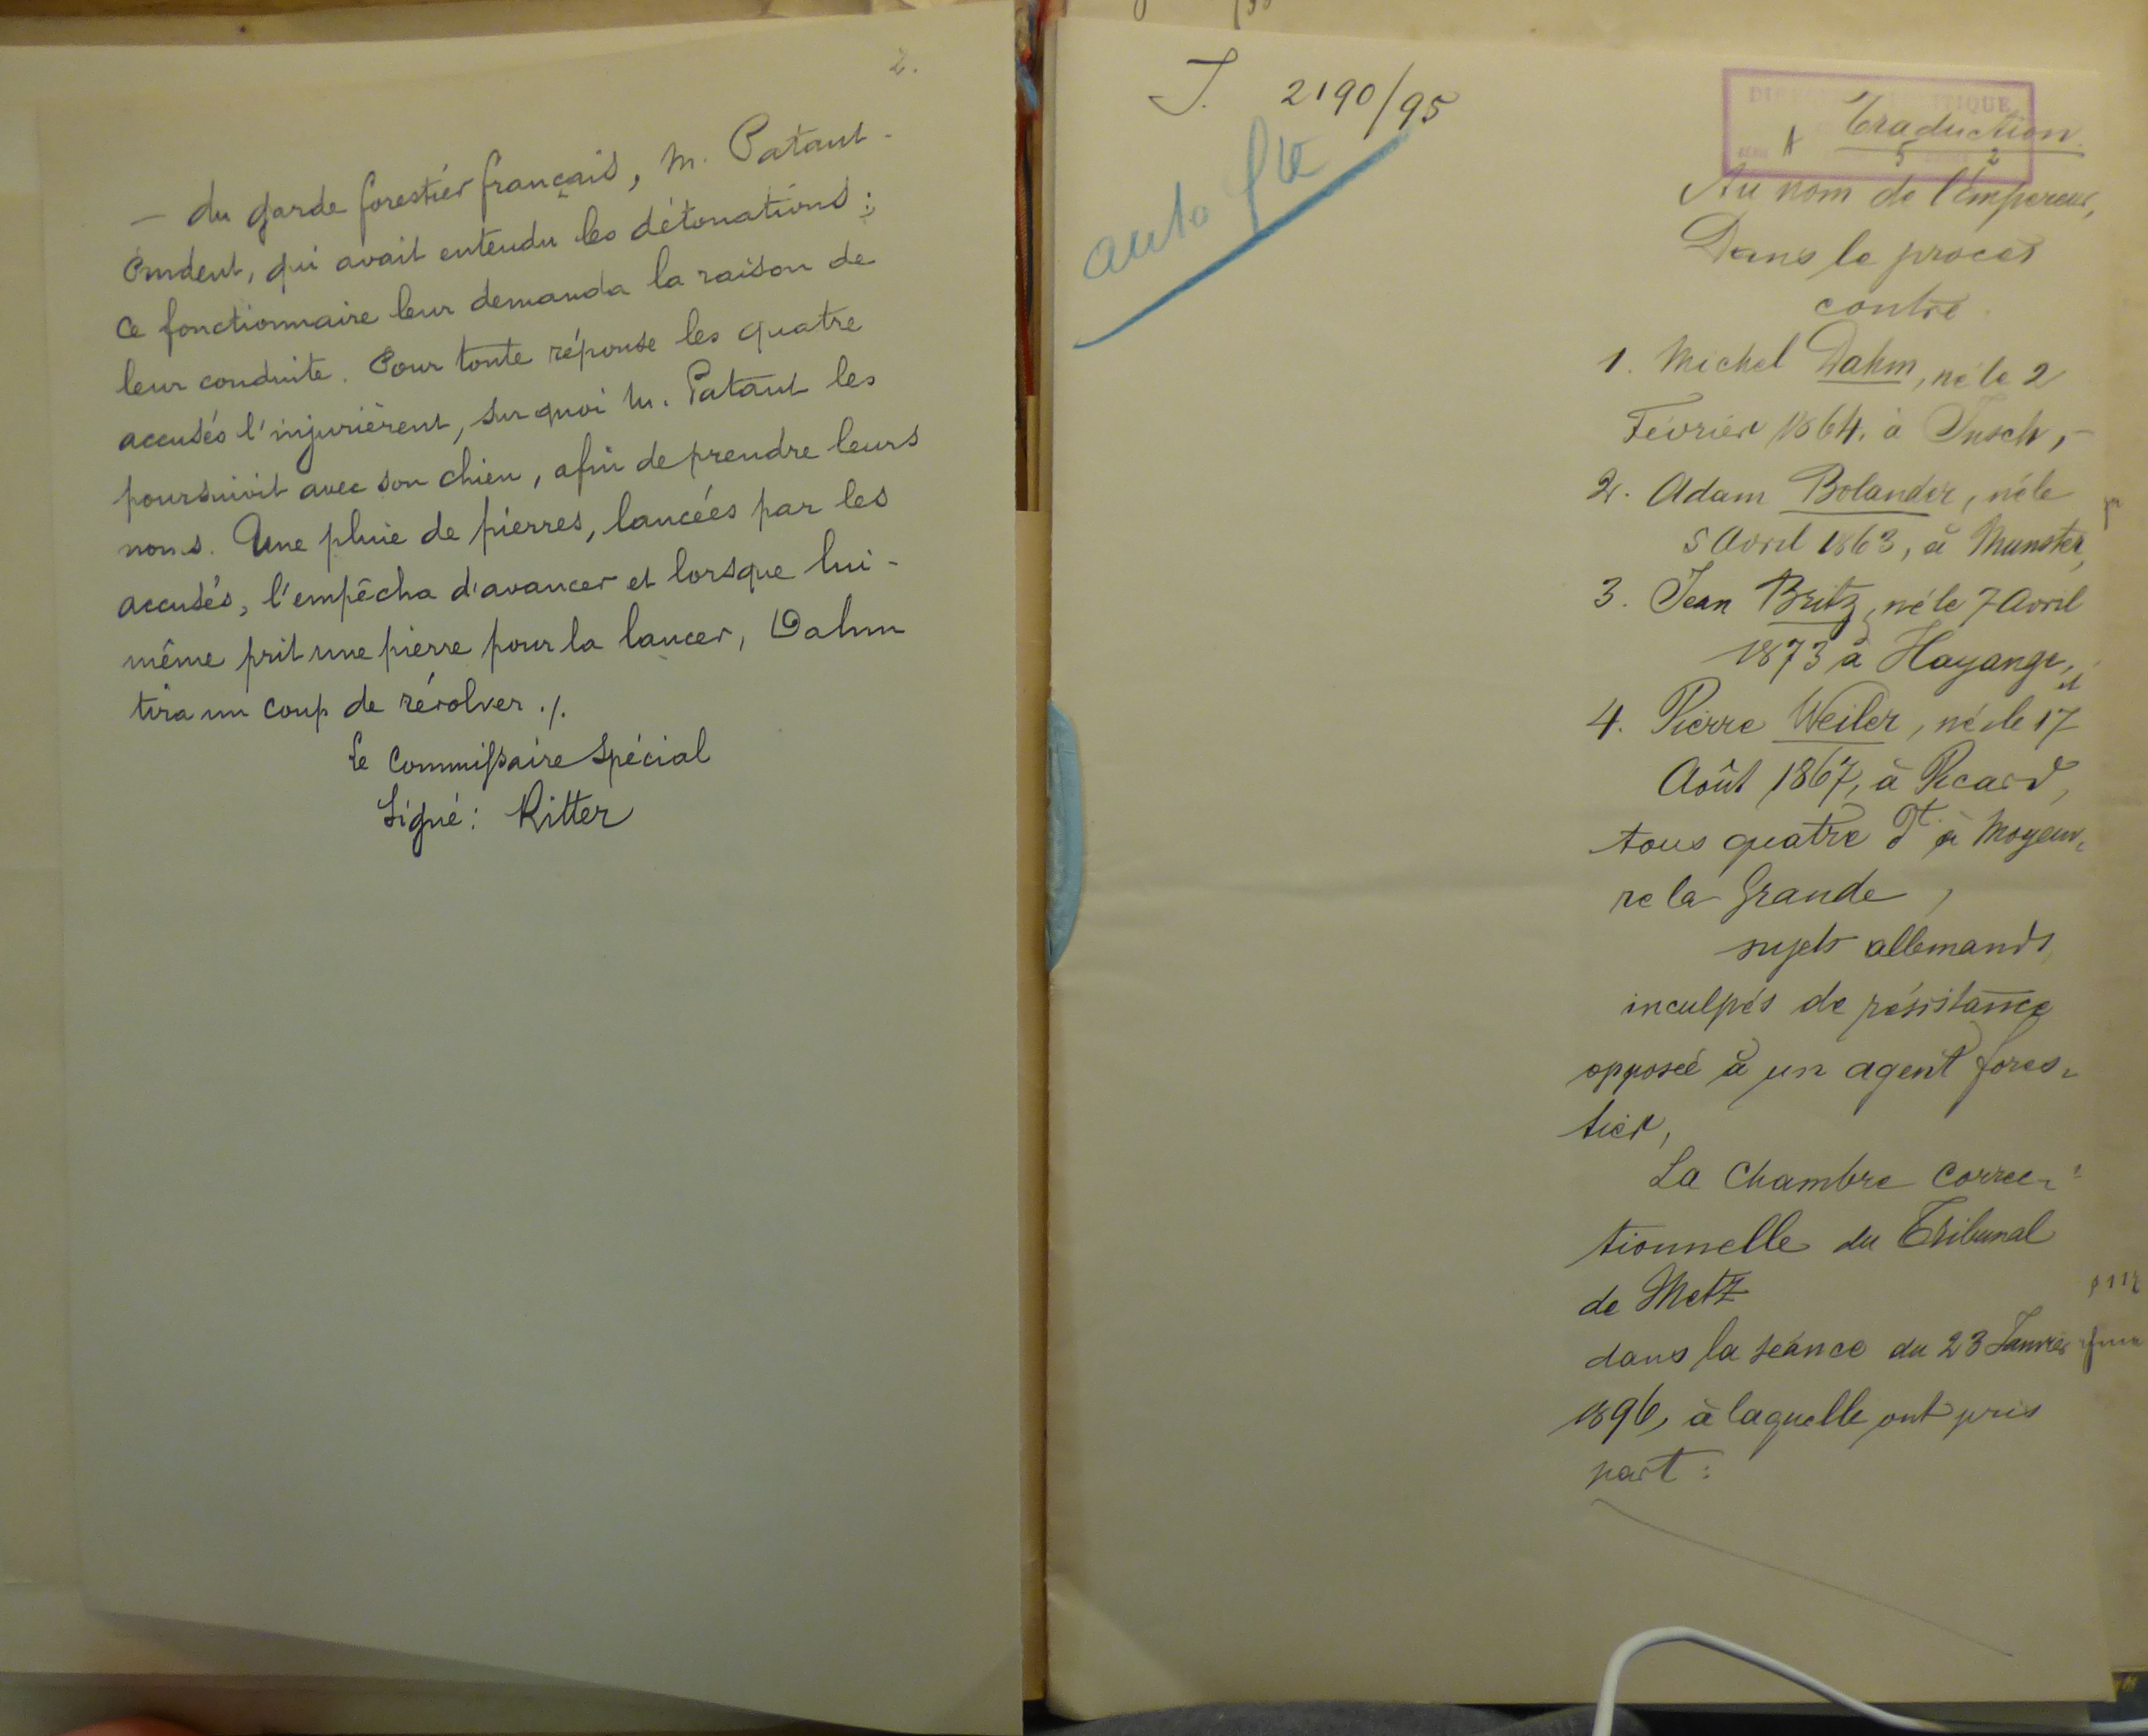 2.
— du garde forestier français, M. Pataut-
Prudent, qui avait entendu les détonations ;
ce fonctionnaire leur demanda la raison de
leur conduite. Pour toute réponse les quatre
accusés l'injurièrent, sur quoi M. Pataut les
poursuivit avec son chien, afin de prendre leurs
noms. Une pluie de pierres, lancées par les
accusés, l'empêcha d'avancer et lorsque lui-
même prit une pierre pour la lancer, Dahm
tira un coup de révolver ./.
Le Commissaire Spécial
Signé : Ritter
J. 2190/95
auto
Traduction.
A 5 2
Au nom de l'Empereur,
Dans le procès
contre
1. Michel Dahm, né le 2
Février 1864, à Insch, -
2. Adam Bolander, né le
5 Avril 1863, à Munster,
3. Jean Britz, né le 7 Avril
1873 à Hayange, et
4. Pierre Weiler, né le 17
Août 1867, à Picard,
tous quatre dt. à Moyeuv-
re la Grande,
sujets allemands,
inculpés de résistance
opposée à un agent fores-
tier,
La Chambre correc-
tionnelle du Tribunal
de Metz
dans la séance du 23 Janvier
1896, à laquelle ont pris
part :